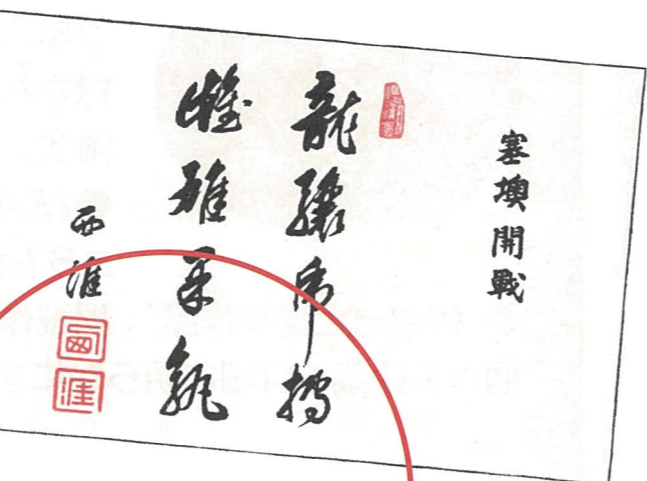 塞墺開戰
龍驤虎搏
雌雄果孰
西涯
西
涯